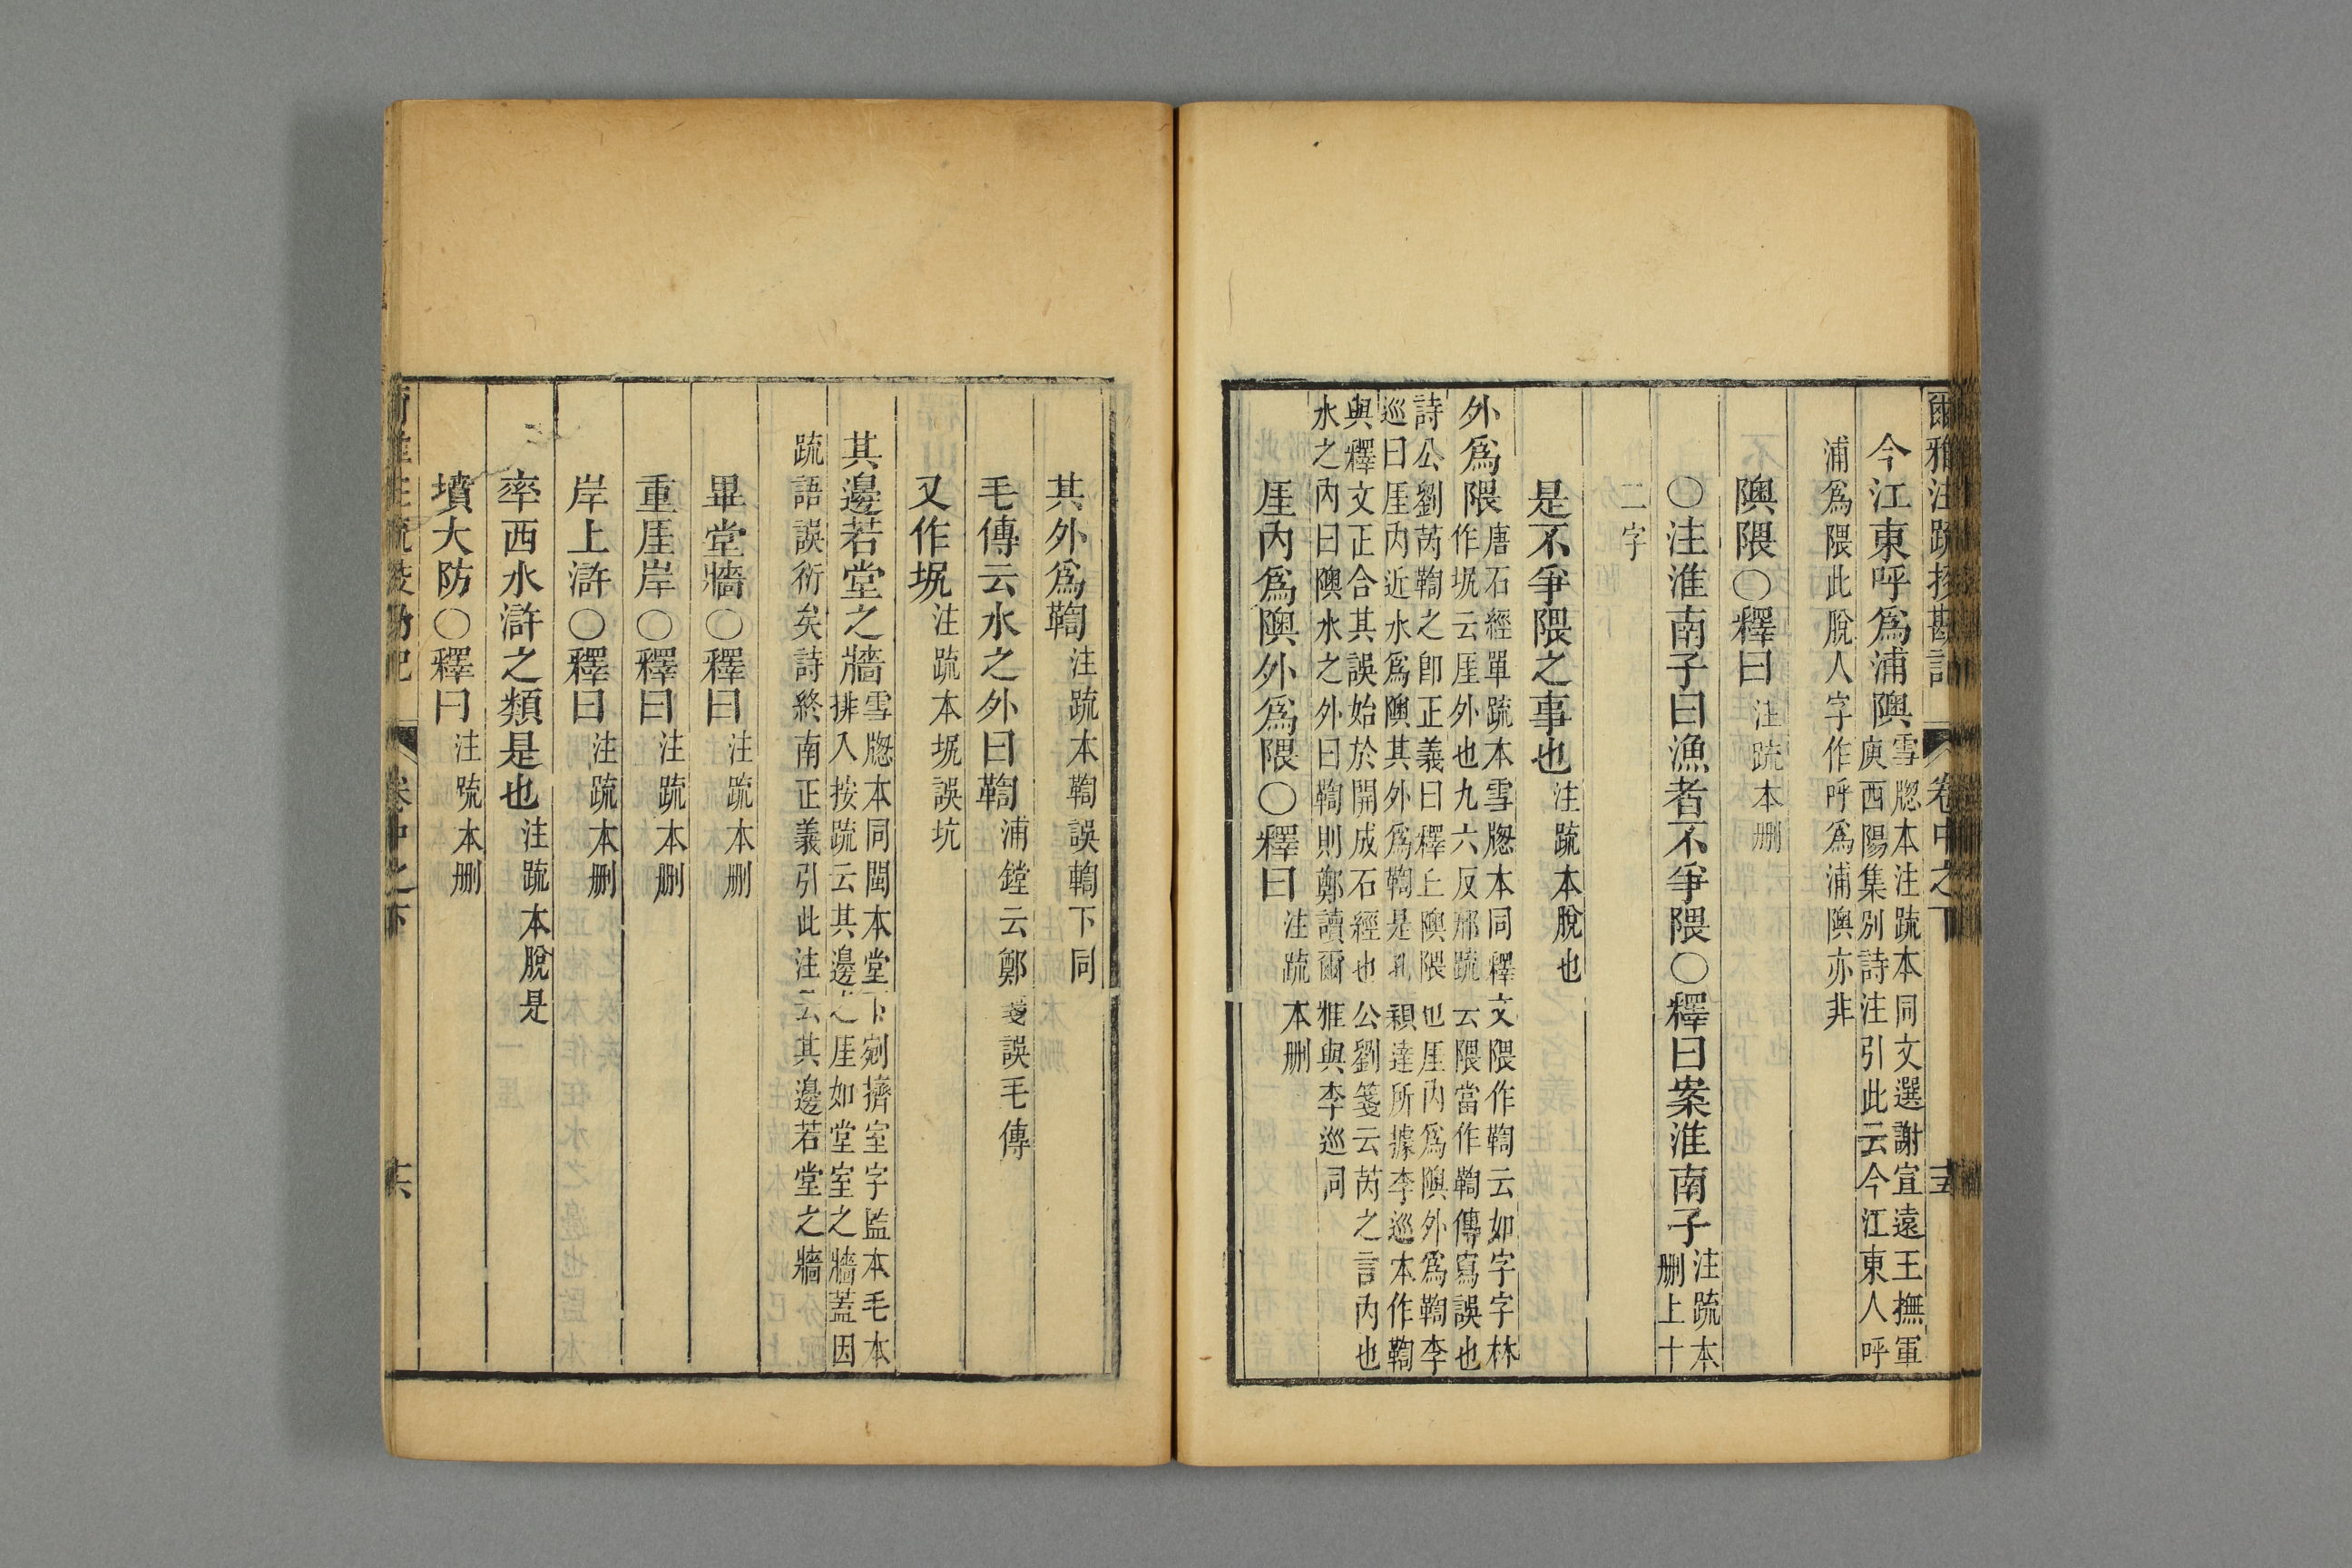 爾雅注疏挍勘記 卷中之下 十五
今江東呼爲浦隩雪牕本注疏本同文選謝宣遠王撫軍
庾西陽集別詩注引此云今江東人呼
浦爲隈此脫人字作呼爲浦隩亦非
隩隈○釋曰注疏本删
○注淮南子曰漁者不爭隈○釋曰案淮南子注疏本
删上十
二字
是不爭隈之事也注疏本脫也
外爲隈唐石經單疏本雪牕本同釋文隈作鞫云如字字林
作坭云厓外也九六反邢疏云隈當作鞫傳寫誤也
詩公劉芮鞫之卽正義曰釋丘隩隈也厓内爲隩外爲鞫李
巡曰厓内近水爲隩其外爲鞫是孔穎達所據李巡本作鞫
與釋文正合其誤始於開成石經也公劉箋云芮之言内也
水之内曰隩水之外曰鞫則鄭讀爾雅與李巡同
厓内爲隩外爲隈○釋曰注疏本删
其外爲鞫注疏本鞫誤鞠下同
毛傳云水之外曰鞫浦鏜云鄭箋誤毛傳
又作坭注疏本坭誤坑
其邊若堂之牆雪牕本同閩本堂下剜擠室字監本毛本
排入按疏云其邊之厓如堂室之牆蓋因
疏語誤衍矣詩終南正義引此注云其邊若堂之牆
畢堂牆○釋曰注疏本删
重厓岸○釋曰注疏本删
岸上滸○釋曰注疏本删
率西水滸之類是也注疏本脫是
墳大防○釋曰注疏本删
爾雅注疏挍勘記 卷中之下 十六